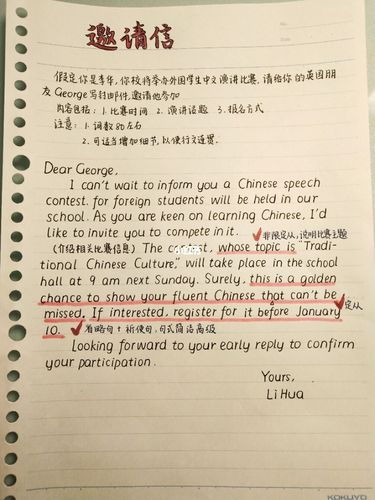 邀请信
假定你是李华，你校将举办外国学生中文演讲比赛，请给你的英国朋
友George写封邮件，邀请他参加
内容包括：1.比赛时间 2.演讲话题 3.报名方式
注意：1.词数80左右
2.可适当增加细节，以使行文连贯.
Dear George,
I can't wait to inform you a Chinese speech
contest for foreign students will be held in our
school. As you are keen on learning Chinese, I'd
like to invite you to compete in it.
非限定从，说明比赛主题
(介绍相关比赛信息) The contest, whose topic is "Tradi-
tional Chinese Culture," will take place in the school
hall at 9 am next Sunday. Surely, this is a golden
chance to show your fluent Chinese that can't be
missed. If interested, register for it before January
定从
10. 省略句+祈使句，句式简洁高级
Looking forward to your early reply to confirm
your participation.
Yours,
Li Hua
KOKUYO